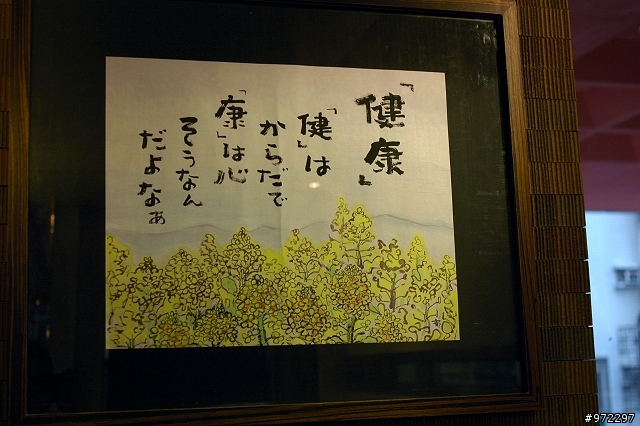 「健康」
「健」は
からだで
「康」は心
そうなん
だよなぁ
#972297